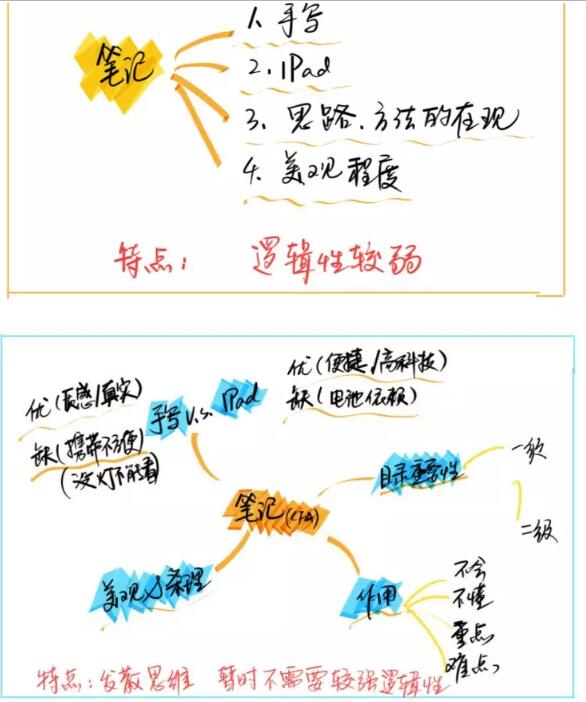 笔记
1. 手写
2. iPad
3、思路、方法的在现
4、美观程度
特点： 逻辑性较弱
优(便捷/高科技)
缺(电池依赖)
优(质感/真实)
手写 V.S. iPad
缺(携带不便)
(没灯不能看)
目录重要性
一级
二级
笔记
美观&条理
作用
不会
不懂
重点
难点
特点：发散思维 暂时不需要较强逻辑性